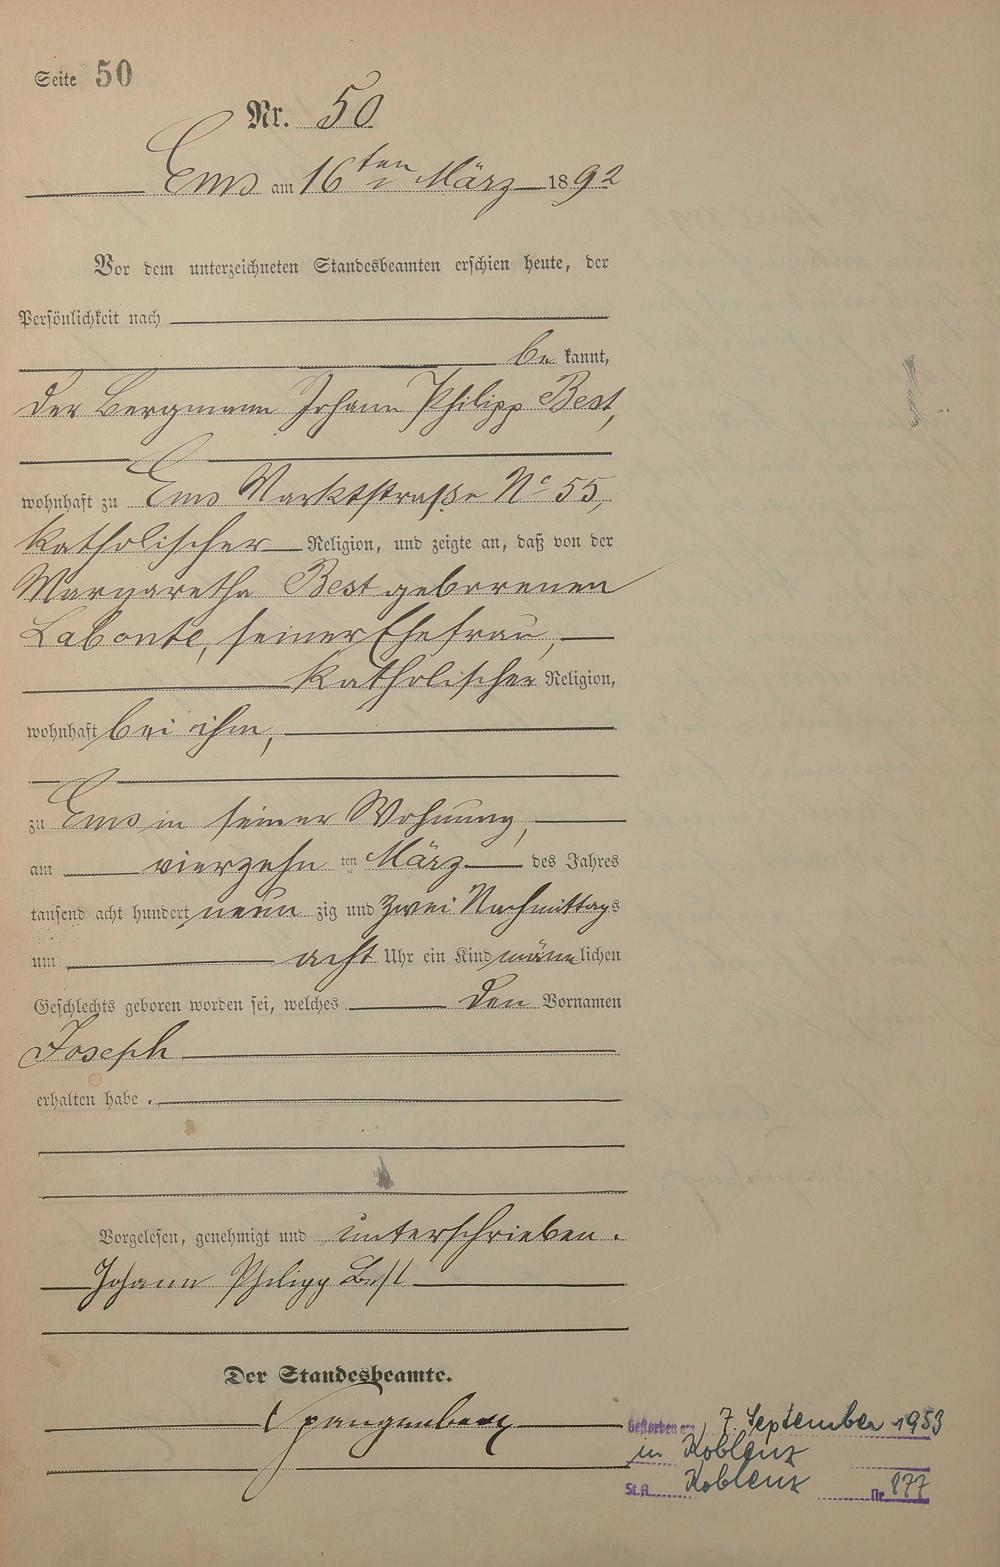 Seite 50
Nr. 50
Ems am 16ten März 1892
Vor dem unterzeichneten Standesbeamten erschien heute, der
Persönlichkeit nach
be kannt,
der Bergmann Johann Philipp Best,
wohnhaft zu Ems Marktstraße No 55,
katholischer Religion, und zeigte an, daß von der
Margaretha Best geborenen
Labonte, seiner Ehefrau,
katholischer Religion,
wohnhaft bei ihm,
zu Ems in seiner Wohnung,
am vierzehn ten März des Jahres
tausend acht hundert neun zig und zwei Nachmittags
um acht Uhr ein Kind männlichen
Geschlechts geboren worden sei, welches den Vornamen
Joseph
erhalten habe.
Vorgelesen, genehmigt und unterschrieben.
Johann Philipp Best
Der Standesbeamte.
Spangenberg
Gestorben am 7. September 1953
in Koblenz
St.A. Koblenz Nr. 877